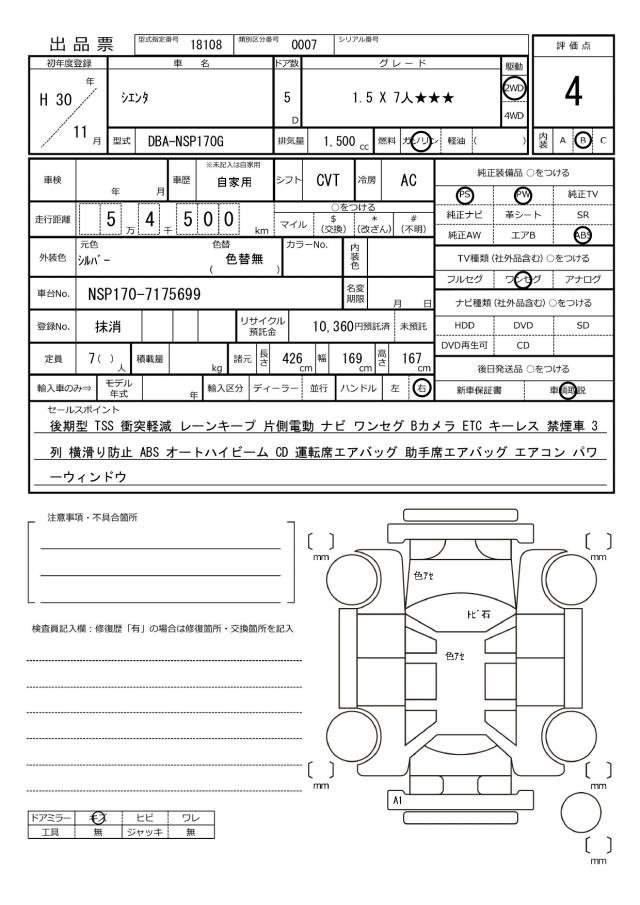 出品票 型式指定番号 18108 類別区分番号 0007 シリアル番号
評価点
初年度登録 車名 ドア数 グレード 駆動
H 30 年 シエンタ 5 D 1.5 X 7人★★★ 2WD 4
4WD
11 月 型式 DBA-NSP170G 排気量 1.500 cc 燃料 ガソリン 軽油 ( ) 内装 A B C
※未記入は自家用
車検 年 月 車歴 自家用 シフト CVT 冷房 AC
純正装備品 ○をつける
PS PW 純正TV
走行距離 5 万 4 千 5 0 0 km
○をつける
マイル $ (交換) * (改ざん) # (不明)
純正ナビ 革シート SR
純正AW エアB ABS
外装色 元色 シルバー 色替 ( 色替無 ) カラーNo. 内装色
TV種類 (社外品含む) ○をつける
フルセグ ワンセグ アナログ
車台No. NSP170-7175699 名変期限 月 日
ナビ種類 (社外品含む) ○をつける
登録No. 抹消 リサイクル預託金 10,360円預託済 未預託
HDD DVD SD
DVD再生可 CD
定員 7 ( ) 人 積載量 kg 諸元 長さ 426 cm 幅 169 cm 高さ 167 cm
後日発送品 ○をつける
輸入車のみ⇒ モデル年式 年 輸入区分 ディーラー 並行 ハンドル 左 右
新車保証書 車輌取説
セールスポイント
後期型 TSS 衝突軽減 レーンキープ 片側電動 ナビ ワンセグ Bカメラ ETC キーレス 禁煙車 3
列 横滑り防止 ABS オートハイビーム CD 運転席エアバッグ 助手席エアバッグ エアコン パワ
ーウィンドウ
注意事項・不具合箇所
mm mm
色アセ
トビ石
検査員記入欄：修復歴「有」の場合は修復箇所・交換箇所を記入
色アセ
mm mm
A1
ドアミラー キズ ヒビ ワレ
工具 無 ジャッキ 無
mm